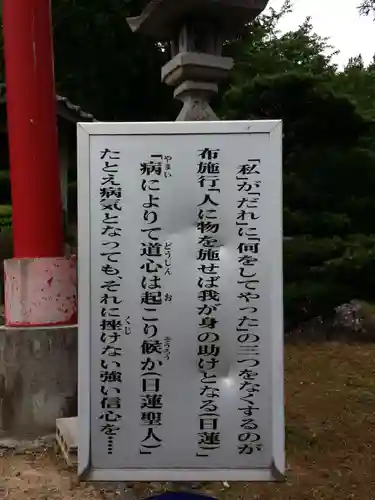 「私」が「だれ」に「何をしてやった」の三つをなくするのが
布施行「人に物を施せば我が身の助けとなる(日蓮)」
「病によりて道心は起こり候か(日蓮聖人)」
やまい
どうしん
お
そうろう
たとえ病気となっても、それに挫けない強い信心を……
くじ